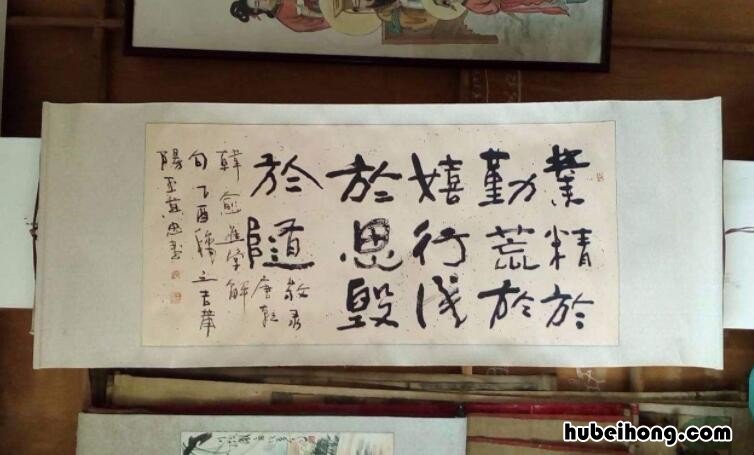 業精於
勤荒於
嬉行成
於思毀
於隨
敬录
唐
韓愈進學解
句丁酉穐之吉
陽
hubeihong.com